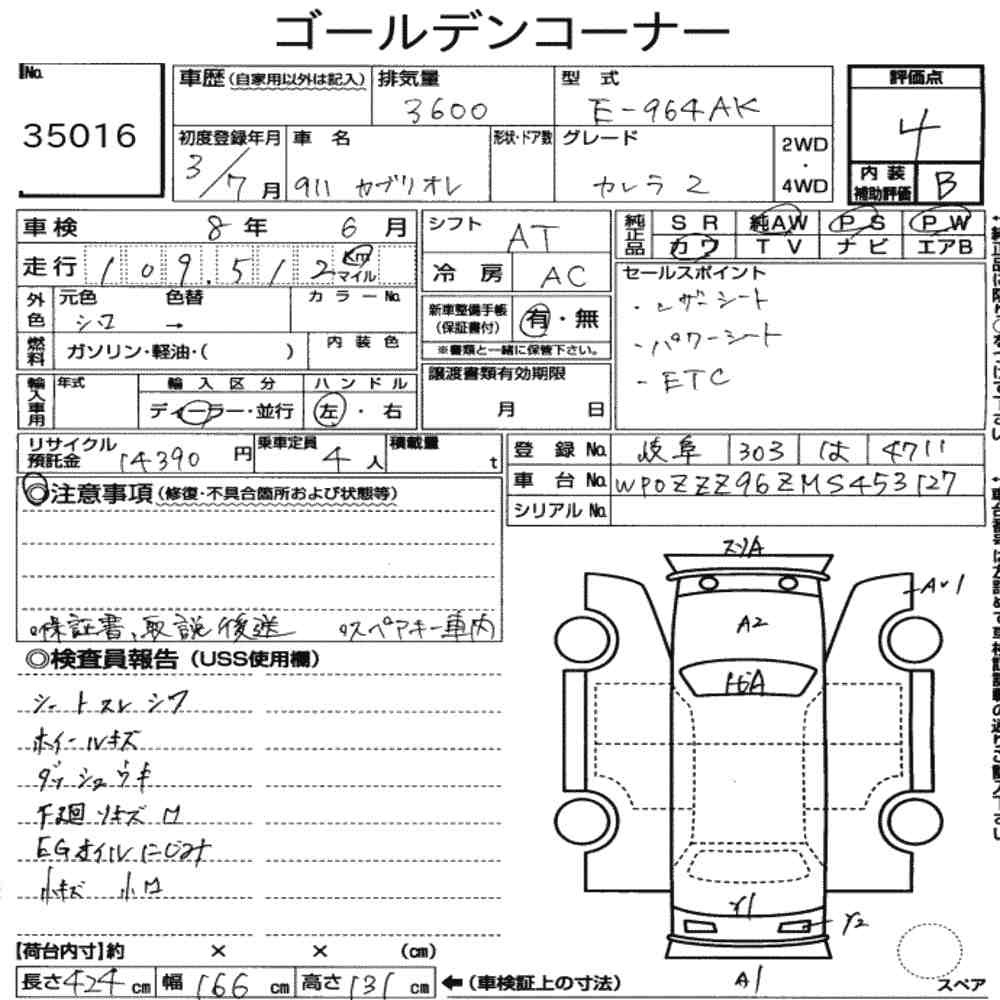 ゴールデンコーナー
No.
35016
車歴(自家用以外は記入)
排気量
3600
型 式
E-964AK
評価点
4
初度登録年月
3/7月
車 名
911 カブリオレ
形状・ドア数
グレード
カレラ2
2WD
・
4WD
内 装
補助評価
B
車検 8年 6月
走行 109,512 Km
マイル
外色
元色
シロ
色替
→
カラーNo.
燃料
ガソリン・軽油・( )
内 装 色
輸入車用
年式
輸 入 区 分
ディーラー・並行
ハ ン ド ル
左・右
シフト
AT
冷 房
AC
新車整備手帳
(保証書付)
有・無
※書類と一緒に保管下さい。
譲渡書類有効期限
月 日
純正品
SR 純AW PS PW
カワ TV ナビ エアB
セールスポイント
・レザーシート
・パワーシート
- ETC
リサイクル
預託金
14390 円
乗車定員
4 人
積載量
t
登 録 No. 岐阜 303 は 4711
車 台 No. WP0ZZZ96ZMS453127
シリアル No.
◎注意事項(修復・不具合箇所および状態等)
。保証書、取説後送 。スペアキー車内
◎検査員報告(USS使用欄)
シートスレシワ
ホイールキズ
ダッシュウキ
下廻りキズ
EGオイルにじみ
小キズ
【荷台内寸】約 × × (cm)
長さ424 cm
幅 166 cm
高さ131 cm
←(車検証上の寸法)
スリA
A2
A・1
Y1
Y2
A1
スペア